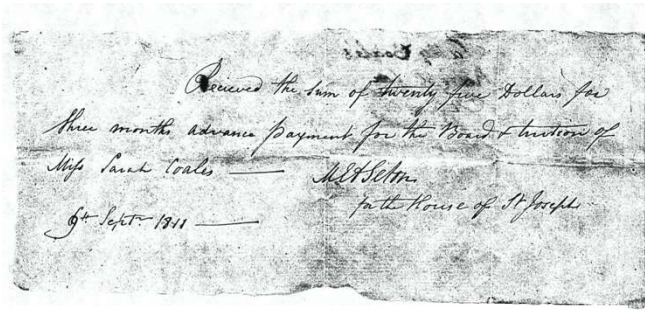 Recieved the sum of twenty five Dollars for
three months advance payment for the Board & tuition of
Miss Sarah Coales —
MEASeton
for the House of St Josephs
9th Sept. 1811 —